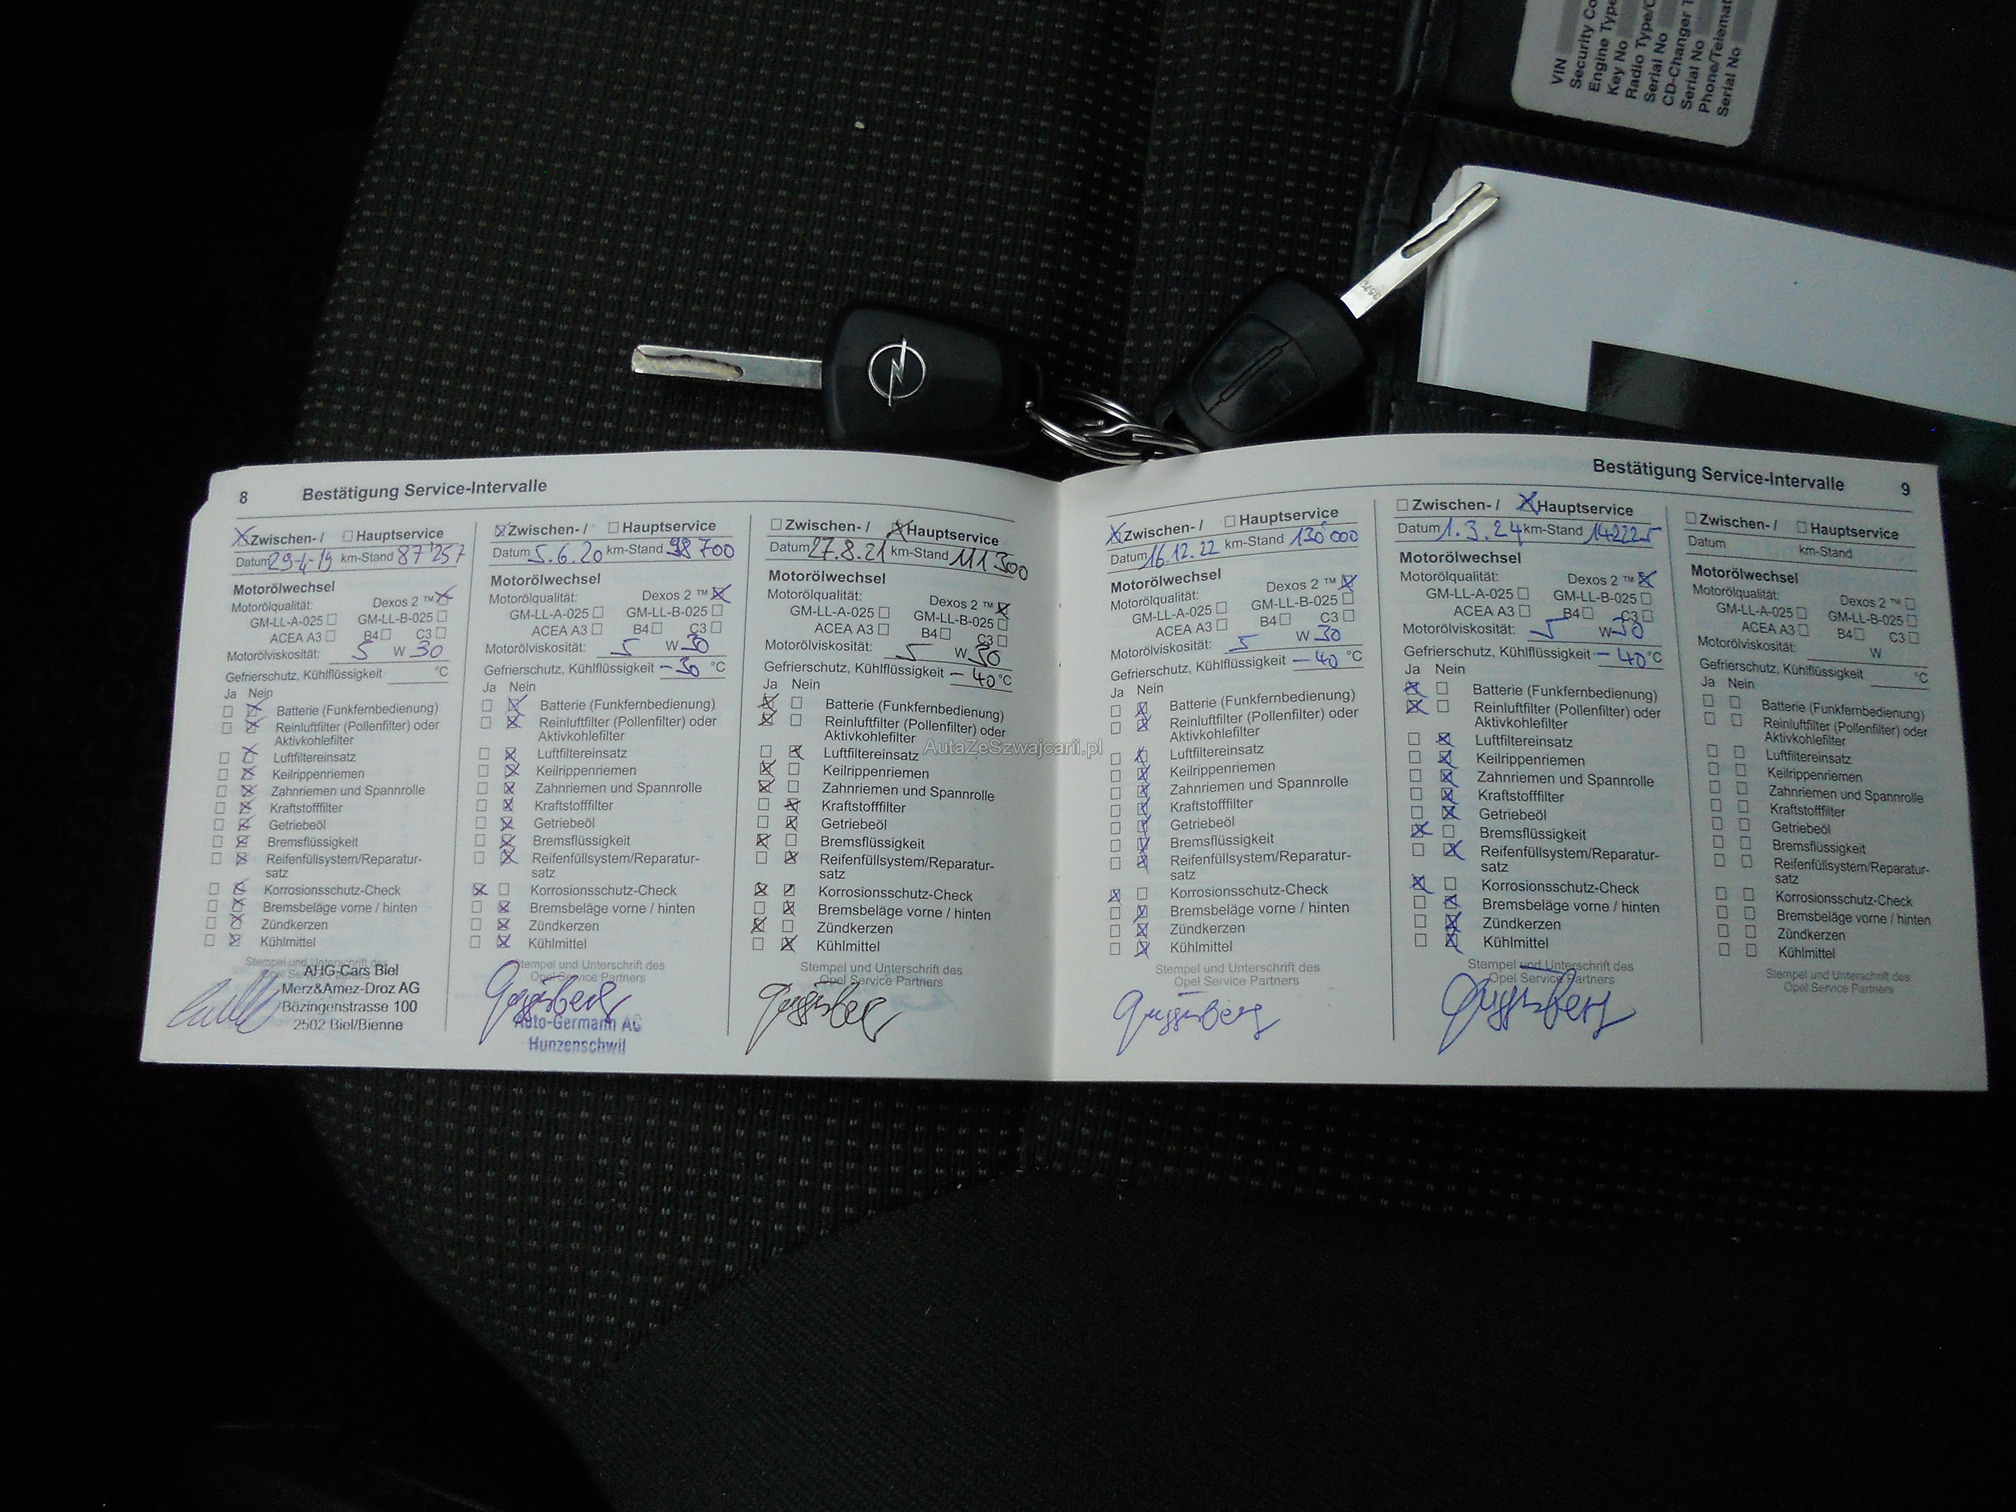 VIN
Security Co
Engine Type
Key No
Radio Type/C
Serial No
CD-Changer T
Serial No
Phone/Telemat
Serial No
8 Bestätigung Service-Intervalle
Zwischen- / Hauptservice
Datum 29-4-19 km-Stand 87'257
Motorölwechsel
Motorölqualität: Dexos 2 ™
GM-LL-A-025 GM-LL-B-025
ACEA A3 B4 C3
Motorölviskosität: 5 W 30
Gefrierschutz, Kühlflüssigkeit °C
Ja Nein
Batterie (Funkfernbedienung)
Reinluftfilter (Pollenfilter) oder
Aktivkohlefilter
Luftfiltereinsatz
Keilrippenriemen
Zahnriemen und Spannrolle
Kraftstofffilter
Getriebeöl
Bremsflüssigkeit
Reifenfüllsystem/Reparatur-
satz
Korrosionsschutz-Check
Bremsbeläge vorne / hinten
Zündkerzen
Kühlmittel
Stempel und Unterschrift des
Opel Service Partners
AHG-Cars Biel
Merz&Amez-Droz AG
Bözingenstrasse 100
2502 Biel/Bienne
Zwischen- / Hauptservice
Datum 5.6.20 km-Stand 98700
Motorölwechsel
Motorölqualität: Dexos 2 ™
GM-LL-A-025 GM-LL-B-025
ACEA A3 B4 C3
Motorölviskosität: 5 W 30
Gefrierschutz, Kühlflüssigkeit -30 °C
Ja Nein
Batterie (Funkfernbedienung)
Reinluftfilter (Pollenfilter) oder
Aktivkohlefilter
Luftfiltereinsatz
Keilrippenriemen
Zahnriemen und Spannrolle
Kraftstofffilter
Getriebeöl
Bremsflüssigkeit
Reifenfüllsystem/Reparatur-
satz
Korrosionsschutz-Check
Bremsbeläge vorne / hinten
Zündkerzen
Kühlmittel
Stempel und Unterschrift des
Opel Service Partners
Auto-Germann AG
Hunzenschwil
Zwischen- / Hauptservice
Datum 27.8.21 km-Stand 111300
Motorölwechsel
Motorölqualität: Dexos 2 ™
GM-LL-A-025 GM-LL-B-025
ACEA A3 B4 C3
Motorölviskosität: 5 W 30
Gefrierschutz, Kühlflüssigkeit -40 °C
Ja Nein
Batterie (Funkfernbedienung)
Reinluftfilter (Pollenfilter) oder
Aktivkohlefilter
Luftfiltereinsatz
Keilrippenriemen
Zahnriemen und Spannrolle
Kraftstofffilter
Getriebeöl
Bremsflüssigkeit
Reifenfüllsystem/Reparatur-
satz
Korrosionsschutz-Check
Bremsbeläge vorne / hinten
Zündkerzen
Kühlmittel
Stempel und Unterschrift des
Opel Service Partners
AutaZeSzwajcarii.pl
Bestätigung Service-Intervalle 9
Zwischen- / Hauptservice
Datum 16.12.22 km-Stand 130'000
Motorölwechsel
Motorölqualität: Dexos 2 ™
GM-LL-A-025 GM-LL-B-025
ACEA A3 B4 C3
Motorölviskosität: 5 W 30
Gefrierschutz, Kühlflüssigkeit -40 °C
Ja Nein
Batterie (Funkfernbedienung)
Reinluftfilter (Pollenfilter) oder
Aktivkohlefilter
Luftfiltereinsatz
Keilrippenriemen
Zahnriemen und Spannrolle
Kraftstofffilter
Getriebeöl
Bremsflüssigkeit
Reifenfüllsystem/Reparatur-
satz
Korrosionsschutz-Check
Bremsbeläge vorne / hinten
Zündkerzen
Kühlmittel
Stempel und Unterschrift des
Opel Service Partners
Zwischen- / Hauptservice
Datum 1.3.24 km-Stand 142225
Motorölwechsel
Motorölqualität: Dexos 2 ™
GM-LL-A-025 GM-LL-B-025
ACEA A3 B4 C3
Motorölviskosität: 5 W 30
Gefrierschutz, Kühlflüssigkeit -40 °C
Ja Nein
Batterie (Funkfernbedienung)
Reinluftfilter (Pollenfilter) oder
Aktivkohlefilter
Luftfiltereinsatz
Keilrippenriemen
Zahnriemen und Spannrolle
Kraftstofffilter
Getriebeöl
Bremsflüssigkeit
Reifenfüllsystem/Reparatur-
satz
Korrosionsschutz-Check
Bremsbeläge vorne / hinten
Zündkerzen
Kühlmittel
Stempel und Unterschrift des
Opel Service Partners
Zwischen- / Hauptservice
Datum km-Stand
Motorölwechsel
Motorölqualität: Dexos 2 ™
GM-LL-A-025 GM-LL-B-025
ACEA A3 B4 C3
Motorölviskosität: W
Gefrierschutz, Kühlflüssigkeit °C
Ja Nein
Batterie (Funkfernbedienung)
Reinluftfilter (Pollenfilter) oder
Aktivkohlefilter
Luftfiltereinsatz
Keilrippenriemen
Zahnriemen und Spannrolle
Kraftstofffilter
Getriebeöl
Bremsflüssigkeit
Reifenfüllsystem/Reparatur-
satz
Korrosionsschutz-Check
Bremsbeläge vorne / hinten
Zündkerzen
Kühlmittel
Stempel und Unterschrift des
Opel Service Partners